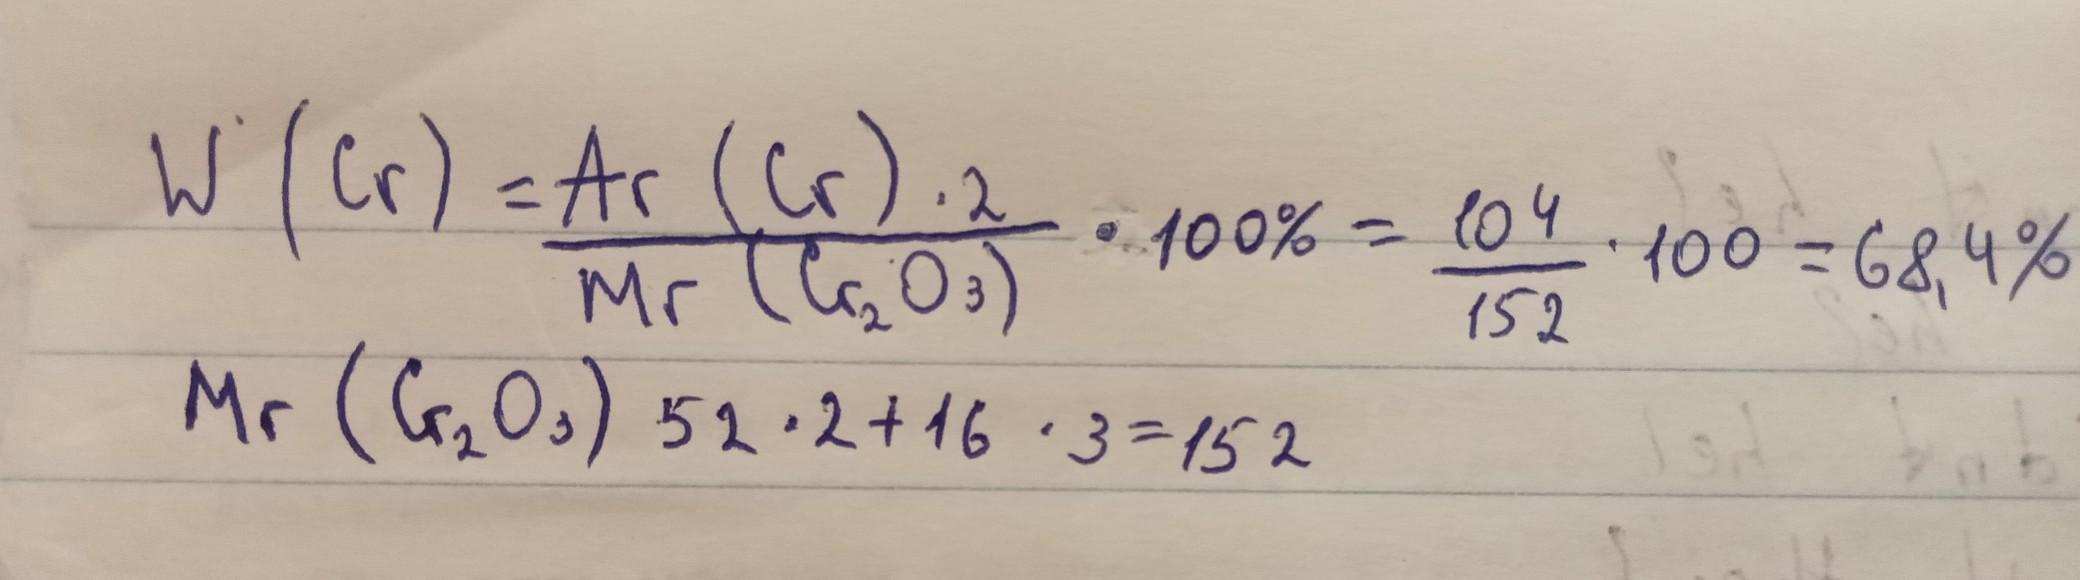 W (Cr) = Ar (Cr) · 2 / Mr (Cr₂O₃) · 100% = 104 / 152 · 100 = 68,4%
Mr (Cr₂O₃) 52 · 2 + 16 · 3 = 152